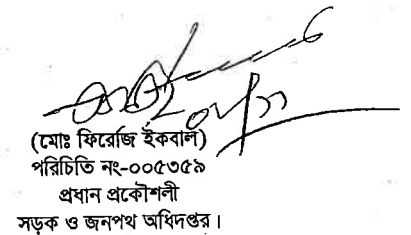 (মোঃ ফিরোজ ইকবাল)
পরিচিতি নং-০০৫৩৫৯
প্রধান প্রকৌশলী
সড়ক ও জনপথ অধিদপ্তর।